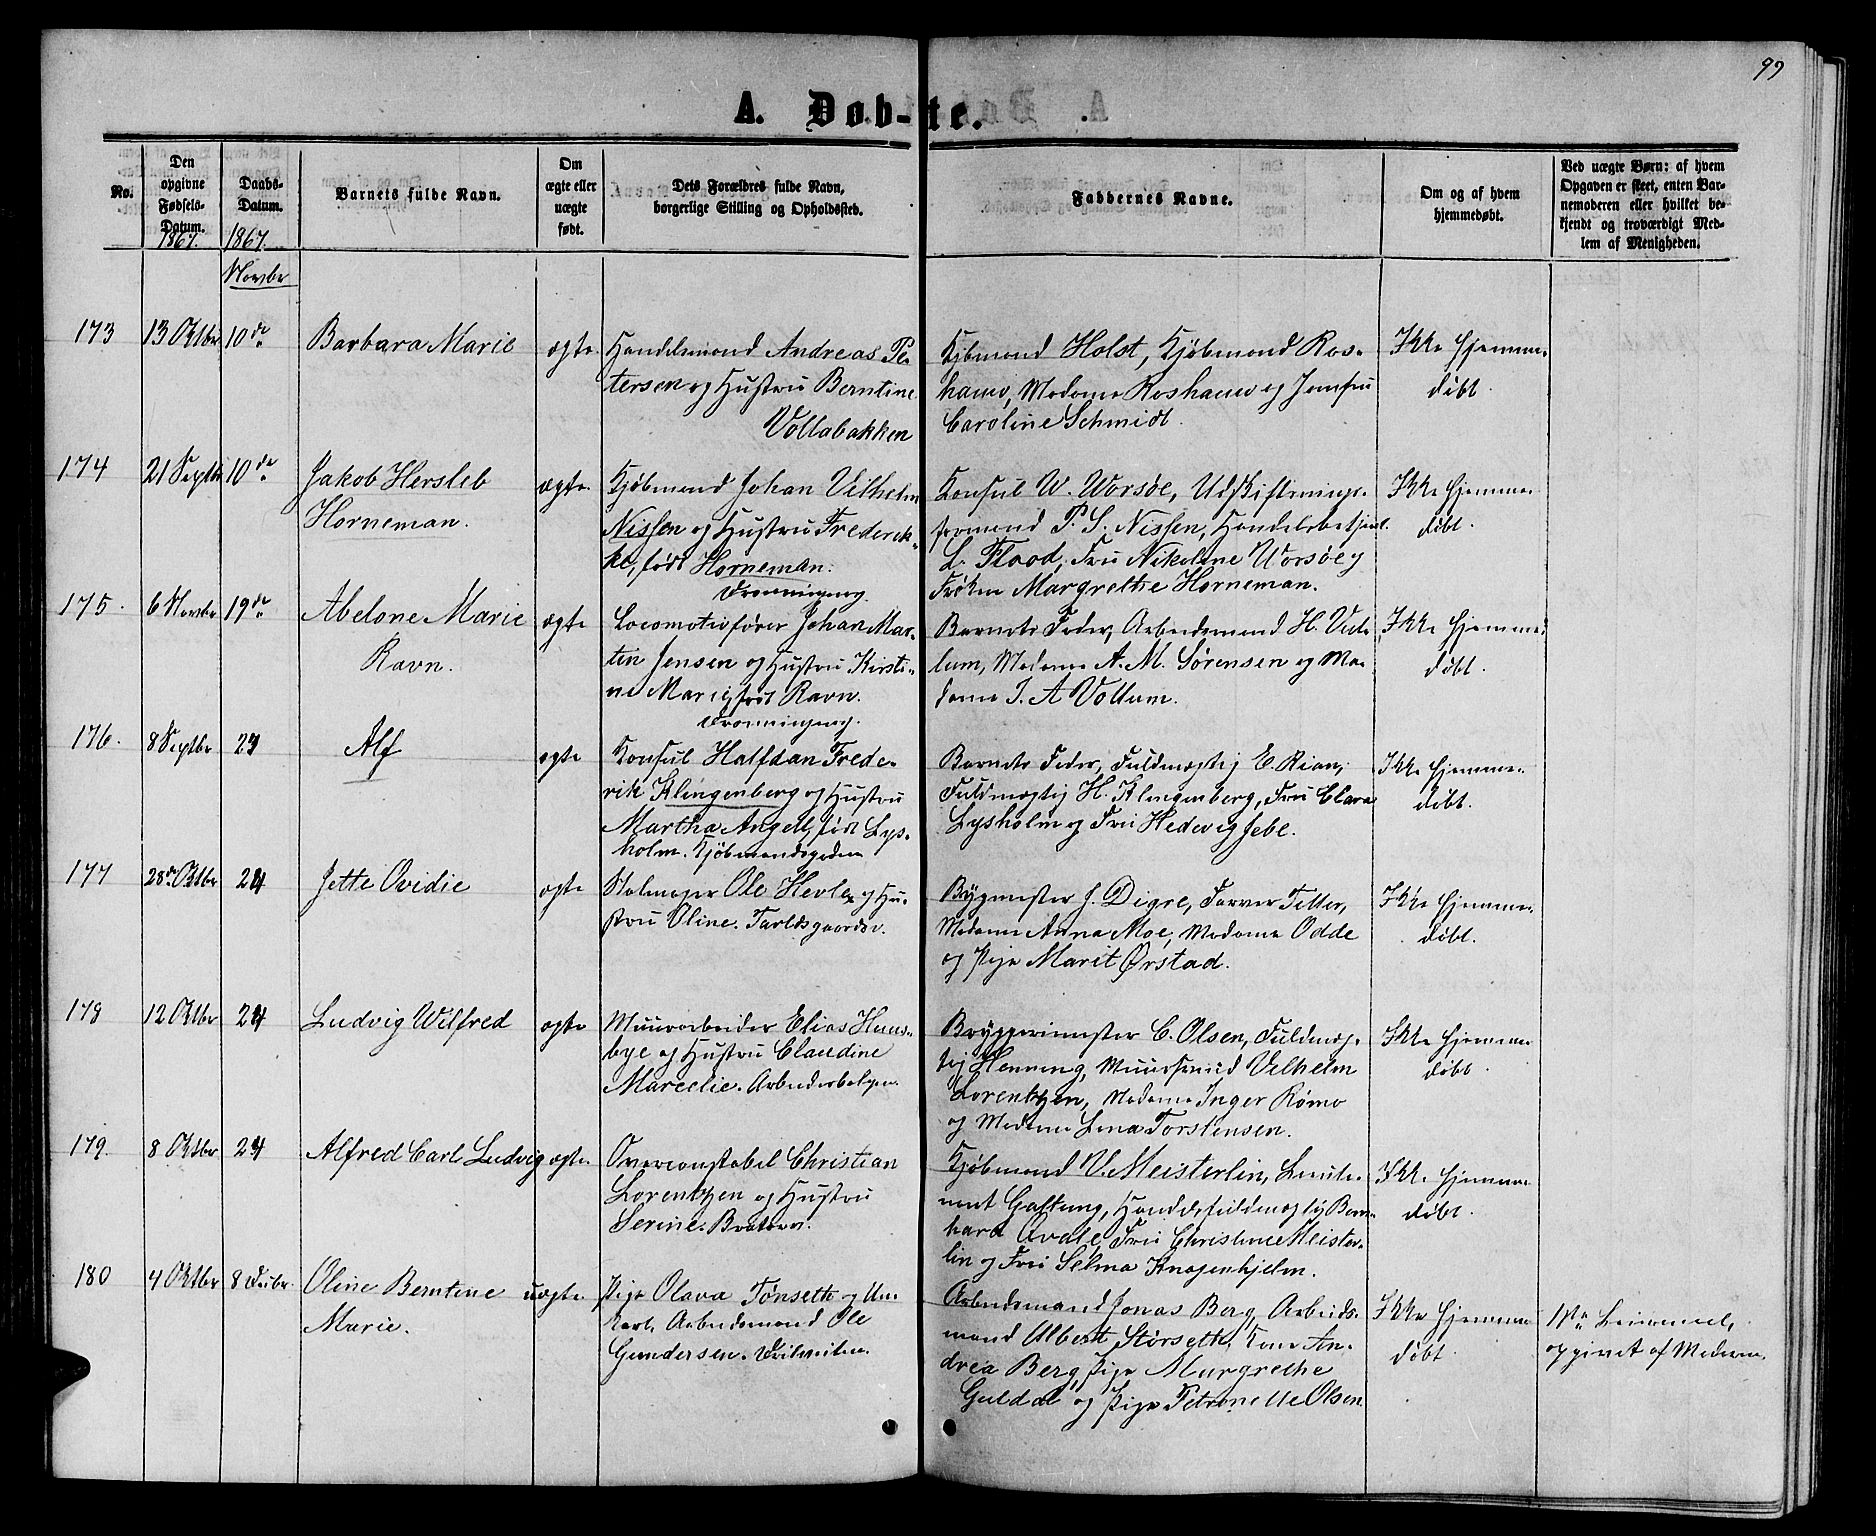 99
A. Døb-te.
No.
Den opgivne Fødsels-Datum.
Daabs-Datum.
Barnets fulde Navn.
Om ægte eller uægte født.
Dets Forældres fulde Navn, borgerlige Stilling og Opholdssted.
Faddernes Navne.
Om og af hvem hjemmedøbt.
Ved uægte Børn: af hvem Opgaven er skeet, enten Barnemoderen eller hvilket bekjendt og troværdigt Medlem af Menigheden.
1867. 1867.
Novbr
173 13 Oktbr 10de Barbara Marie ægte Handelsmand Andreas Pe-
tersen og Hustru Berntine
Vollabakken
Kjøbmand Holst, Kjøbmand Ros-
hauw, Madame Roshauw og Jomfru
Caroline Schmidt.
Ikke hjemme-
døbt.
174 21 Septbr 10de Jakob Hersleb
Horneman.
ægte Kjøbmand Johan Vilhelm
Nissen og Hustru Frederik-
ke, født Horneman.
Dronningensg.
Konsul W. Worsøe, Udskiftnings-
formand P. S. Nissen, Handelsbetjent
L. Flood, Fru Nikoline Worsøe og
Frøken Margrethe Horneman.
Ikke hjemme-
døbt.
175. 6 Novbr 19de Abelone Marie
Ravn.
ægte Locomotivfører Johan Mar-
tin Jensen og Hustru Kirsti-
ne Marie, født Ravn.
Dronningensg.
Barnets Fader, Arbeidsmand H.
Madame A. M. Sørensen og Ma-
dame J. A Vollum.
Ikke hjemme-
døbt.
176. 8 Septbr 23 Alf ægte Konsul Halfdan Frede-
rik Klingenberg og Hustru
Martha Angell, født Lys-
holm. Kjøbmandsgaden
Barnets Fader, Fuldmægtig E. Rian,
Fuldmægtig H. Klingenberg, Fru Clara
Lysholm og Fru Hedevig Jebe.
Ikke hjemme-
døbt.
177 28de Oktbr 24 Jette Ovidie ægte Ole Hevle og Hu-
stru Oline.
Bygmester J. Digre, Farver Tetter,
Madame Anna Moe, Madame Odde
og Pige Marit Ørstad.
Ikke hjemme-
døbt.
178 12 Oktbr 24 Ludvig Wilfred ægte Muurarbeider Elias Huus-
bye og Hustru Claudine
Marcelie. Arbeiderboligen.
Bryggerimester C. Olsen, Fuldmæg-
tig Henning, Muursvend Vilhelm
Lorentzen, Madame Inger Rømo
og Madame Lena Torstensen.
Ikke hjemme-
døbt.
179. 8 Oktbr 24 Alfred Carl Ludvig ægte Overconstabel Christian
Lorentzen og Hustru
Serine. Bratøren.
Kjøbmand V. Meisterlin, Lieute-
nant Galtung, Handelsfuldmægtig Bern-
hard Fru Christine Meister-
lin og Fru Selma Knagenhjelm.
Ikke hjemme-
døbt.
180 4 Oktbr 8 Decbr. Oline Berntine
Marie.
uægte Pige Olava Tønseth og Un-
karl, Arbeidsmand Ole
Gundersen.
Arbeidsmand Jonas Berg, Arbeids-
mand Albert Størseth, Kone An-
drea Berg, Pige Margrethe
Guldal og Pige Petronelle Olsen
Ikke hjemme-
døbt
1ste Leiermaal,
opgivet af Moderen.